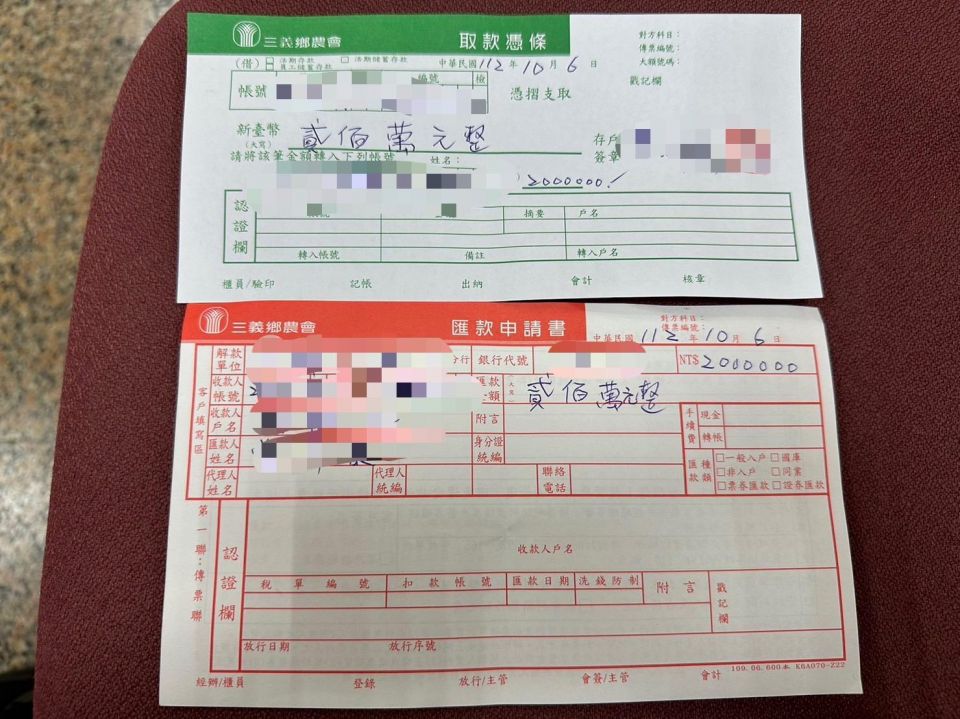 三義鄉農會 取款憑條
對方科目:
傳票編號:
大額號碼:
(借) 活期存款 活期儲蓄存款
員工儲蓄存款
中華民國 112 年 10 月 6 日
戳記欄
編號 檢
帳號
憑摺支取
新臺幣 貳佰萬元整
(大寫)
存戶
簽章
請將該筆金額轉入下列帳號 姓名:
2000000
認證欄
摘要 戶名
轉入帳號 備註 轉入戶名
櫃員/驗印 記帳 出納 會計 核章
三義鄉農會 匯款申請書
對方科目:
傳票編號:
中華民國 112 年 10 月 6 日
客戶填寫區
解款單位 分行 銀行代號 NT$ 2000000
收款人帳號 匯款金額 貳佰萬元整
收款人戶名 附言 手續費 現金
轉帳
匯款人姓名 身分證統編
匯款種類 □一般入戶 □國庫
□非入戶 □同業
□票券匯款 □證券匯款
代理人姓名 代理人統編 聯絡電話
第一聯:傳票聯
認證欄
收款人戶名
稅單編號 扣款帳號 匯款日期 洗錢防制 附言 戳記欄
放行日期 放行序號
109.06.600本 K6A070-222
經辦/櫃員 登錄 放行/主管 會簽/主管 會計